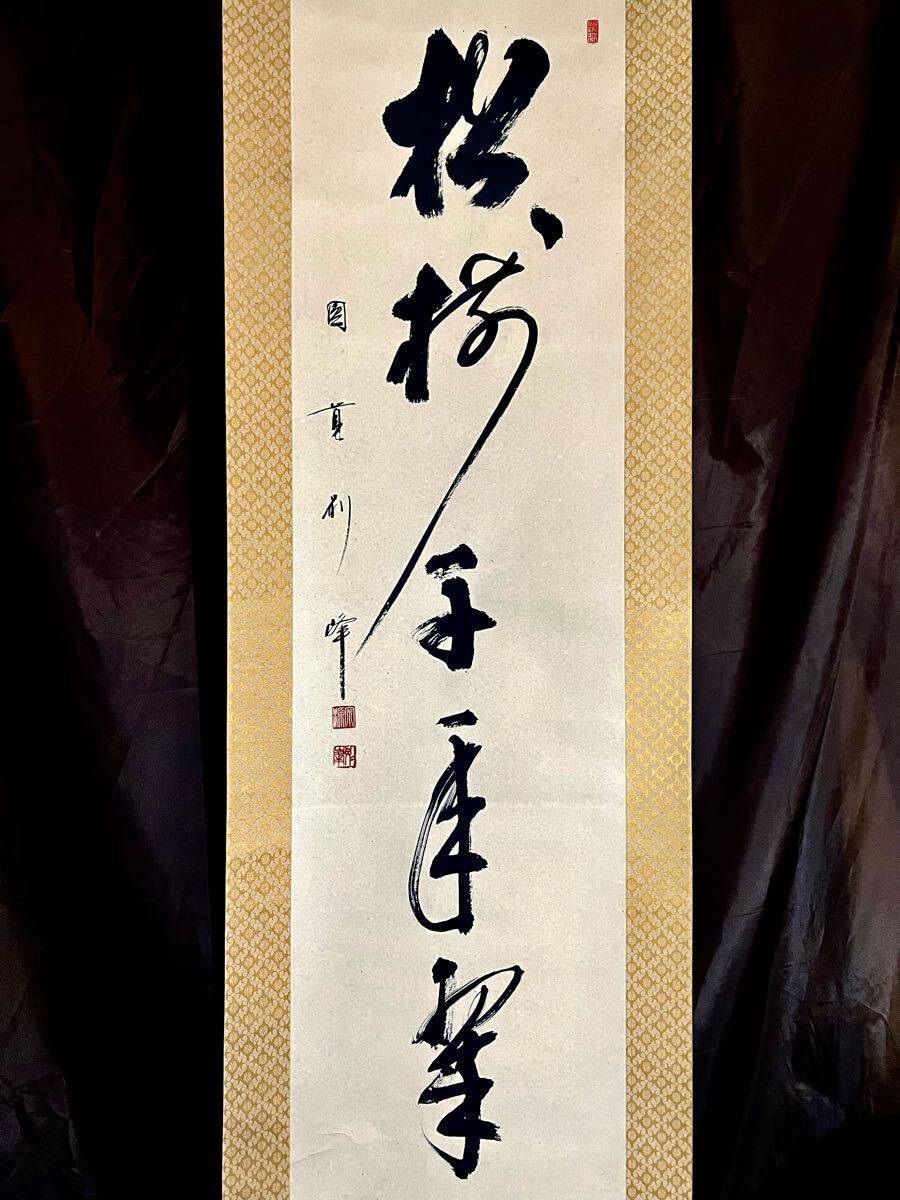 松樹千年翠
圓覚別峰